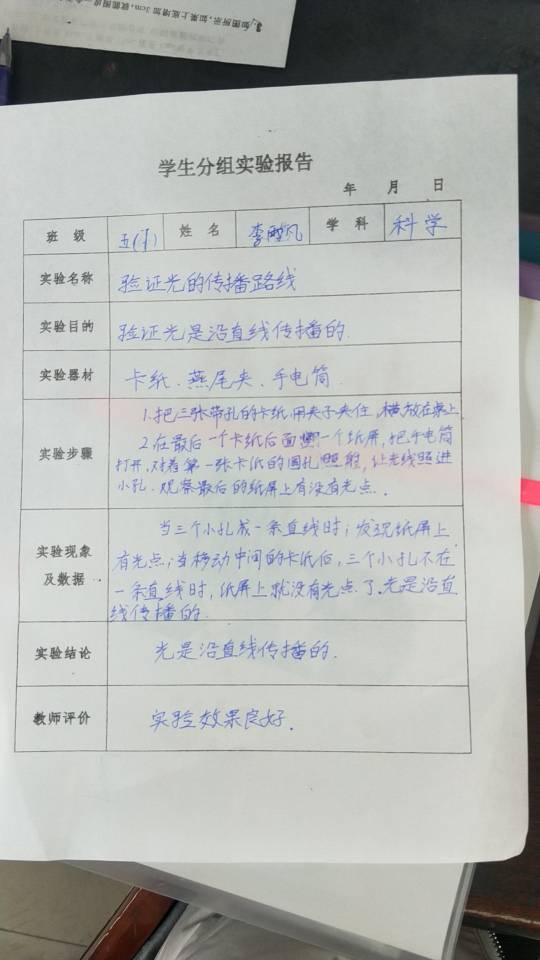 3. 如图所示,如果上底增加3cm,就能围成一个
学生分组实验报告
年 月 日
班 级 五(1) 姓 名 李 凡 学 科 科学
实验名称 验证光的传播路线
实验目的 验证光是沿直线传播的.
实验器材 卡纸、燕尾夹、手电筒.
实验步骤
1.把三张带孔的卡纸用夹子夹住,横放在桌上
2.在最后一个卡纸后面 一个纸屏,把手电筒
打开,对着第一张卡纸的圆孔照射,让光线照进
小孔.观察最后的纸屏上有没有光点.
实验现象
及数据
当三个小孔成一条直线时;发现纸屏上
有光点;当移动中间的卡纸后,三个小孔不在
一条直线时,纸屏上就没有光点了.光是沿直
线传播的.
实验结论 光是沿直线传播的.
教师评价 实验效果良好.